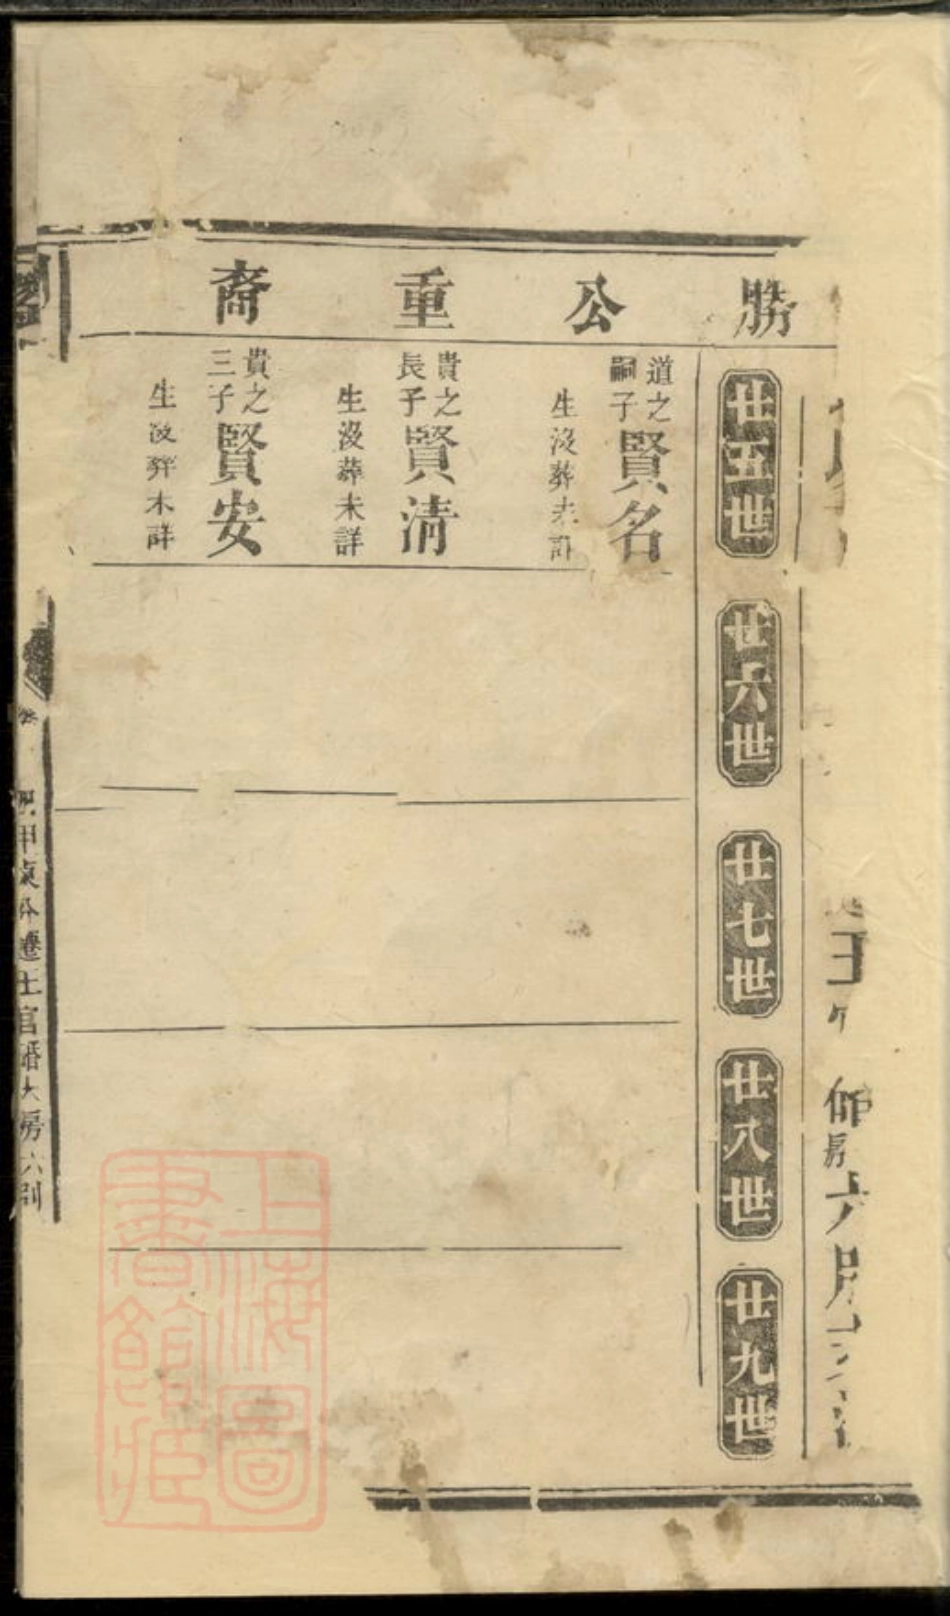 勝公重裔
廿五世
廿六世
廿七世
廿八世
廿九世
道之嗣子賢名
生沒葬未詳
貴之長子賢清
生沒葬未詳
貴之三子賢安
生沒葬未詳
遷土官硚大房六別
上海圖書館藏